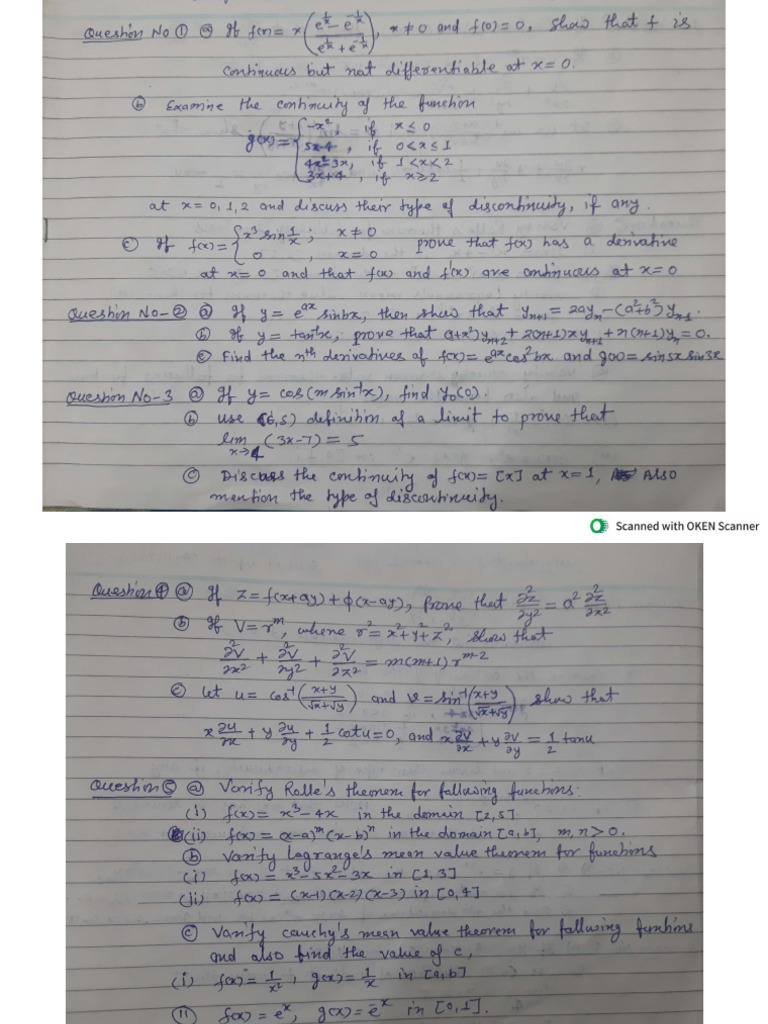 Question No ① ⓐ If f(x) = x((e^{1/x} - e^{-1/x})/(e^{1/x} + e^{-1/x})), x ≠ 0 and f(0) = 0, show that f is
continuous but not differentiable at x = 0.
ⓑ Examine the continuity of the function
g(x) = { -x², if x ≤ 0
5x-4, if 0 < x ≤ 1
4x²-3x, if 1 < x < 2
3x+4, if x ≥ 2
at x = 0, 1, 2 and discuss their type of discontinuity, if any.
ⓒ If f(x) = { x³ sin 1/x ; x ≠ 0
0, x = 0 prove that f(x) has a derivative
at x = 0 and that f(x) and f'(x) are continuous at x = 0
Question No-② ⓐ If y = e^{ax} sinbx, then show that y_{n+1} = 2ay_n - (a²+b²)y_{n-1}.
ⓑ If y = tan⁻¹x, prove that (1+x²)y_{n+2} + 2(n+1)xy_{n+1} + n(n+1)y_n = 0.
ⓒ Find the nth derivatives of f(x) = e^{ax}cos²bx and g(x) = sin5x sin3x
Question No-3 ⓐ If y = cos(m sin⁻¹x), find y_n(0).
ⓑ use (ε,δ) definition of a limit to prove that
lim_{x→4} (3x-7) = 5
ⓒ Discuss the continuity of f(x) = [x] at x = 1, Also
mention the type of discontinuity.
Scanned with OKEN Scanner
Question 4 ⓐ If z = f(x+ay) + φ(x-ay), Prove that ∂²z/∂y² = a² ∂²z/∂x²
ⓑ If V = r^m, where r² = x²+y²+z², show that
∂²V/∂x² + ∂²V/∂y² + ∂²V/∂z² = m(m+1)r^{m-2}
ⓒ Let u = cos⁻¹((x+y)/(√x+√y)) and v = sin⁻¹((x+y)/(√x+√y)) show that
x ∂u/∂x + y ∂u/∂y + 1/2 cotu = 0, and x ∂v/∂x + y ∂v/∂y = 1/2 tanu
Question ⑤ ⓐ Varify Rolle's theorem for fallowing functions:
(i) f(x) = x³-4x in the domain [2,5]
(ii) f(x) = (x-a)^m (x-b)^n in the domain [a,b], m, n > 0.
ⓑ Varify Lagrange's mean value theorem for functions
(i) f(x) = x³-5x²-3x in [1,3]
(ii) f(x) = (x-1)(x-2)(x-3) in [0,4]
ⓒ Varify cauchy's mean value theorem for fallwing functions
and also find the value of c,
(i) f(x) = 1/x², g(x) = 1/x in [a,b]
(ii) f(x) = e^x, g(x) = e^{-x} in [0,1].